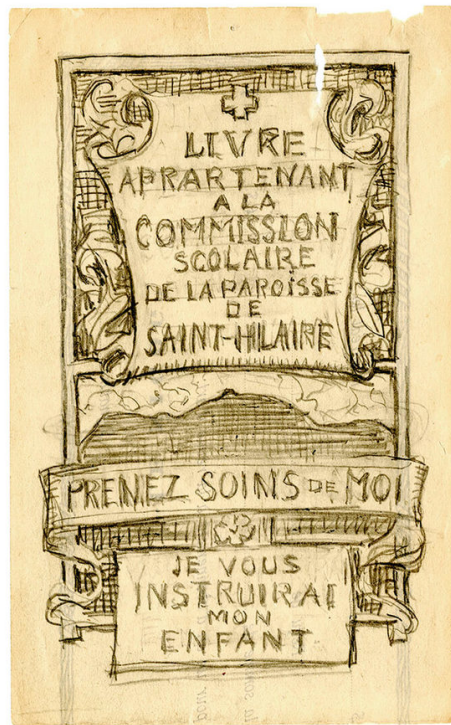 LIVRE
APRARTENANT
A LA
COMMISSION
SCOLAIRE
DE LA PAROISSE
DE
SAINT-HILAIRE
PRENEZ SOINS DE MOI
JE VOUS
INSTRUIRAI
MON
ENFANT